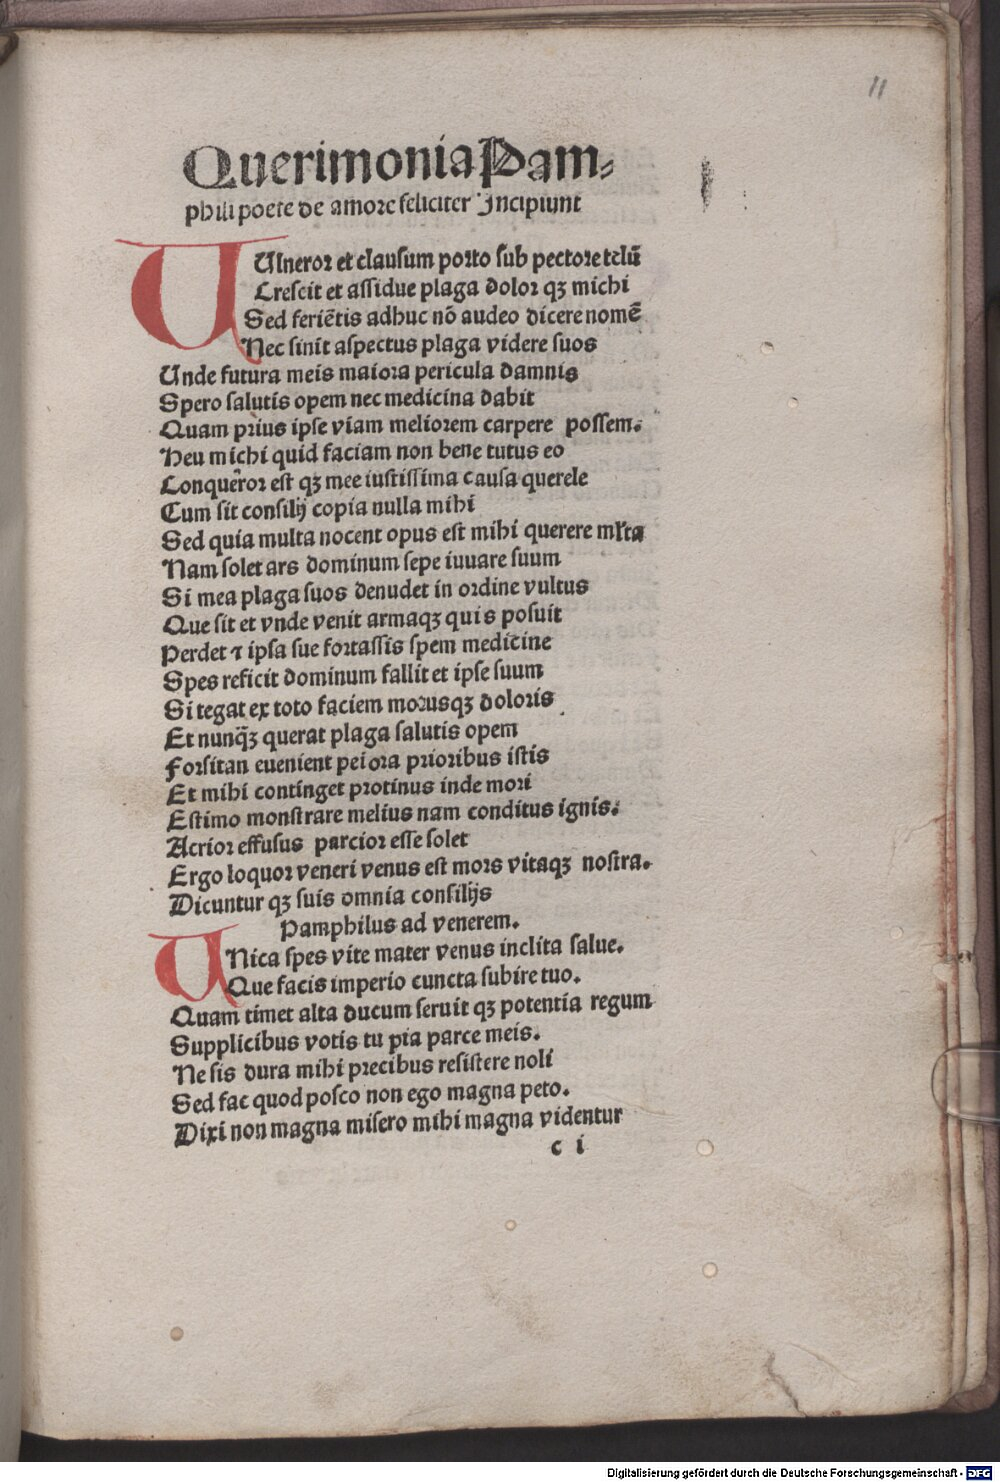 11
Querimonia Pam⸗
phili poete de amore feliciter Incipiunt
VUlneror et clausum porto sub pectore telū
Crescit et assidue plaga dolor qꝫ michi
Sed feriētis adhuc nō audeo dicere nomē
Nec sinit aspectus plaga videre suos
Unde futura meis maiora pericula damnis
Spero salutis opem nec medicina dabit
Quam prius ipse viam meliorem carpere possem.
Heu michi quid faciam non bene tutus eo
Conqueror est qꝫ mee iustissima causa querele
Cum sit consilij copia nulla mihi
Sed quia multa nocent opus est mihi querere mlta
Nam solet ars dominum sepe iuuare suum
Si mea plaga suos denudet in ordine vultus
Que sit et vnde venit armaqꝫ quis posuit
Perdet ⁊ ipsa sue fortassis spem medicine
Spes reficit dominum fallit et ipse suum
Si tegat ex toto faciem morusqꝫ doloris
Et nunq̄ꝫ querat plaga salutis opem
Forsitan euenient peiora prioribus istis
Et mihi continget protinus inde mori
Estimo monstrare melius nam conditus ignis.
Acrior effusus parcior esse solet
Ergo loquor veneri venus est mors vitaqꝫ nostra.
Dicuntur qꝫ suis omnia consilijs
Pamphilus ad venerem.
UNica spes vite mater venus inclita salue.
Que facis imperio cuncta subire tuo.
Quam timet alta ducum seruit qꝫ potentia regum
Supplicibus votis tu pia parce meis.
Ne sis dura mihi precibus resistere noli
Sed fac quod posco non ego magna peto.
Dixi non magna misero mihi magna videntur
c i
Digitalisierung gefördert durch die Deutsche Forschungsgemeinschaft - DFG